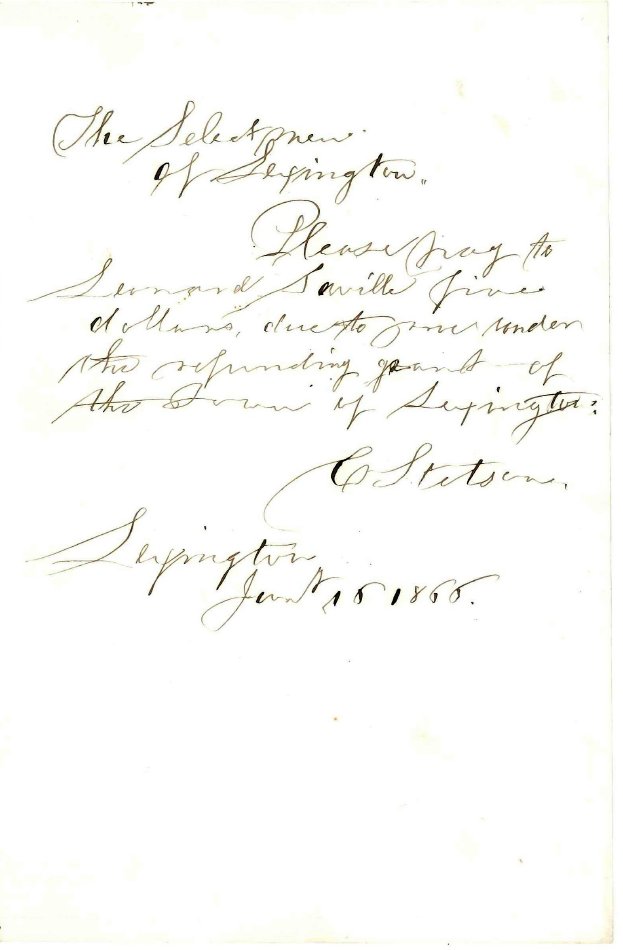 The Selectmen
of Lexington,,
Please pay to
Leonard Saville five
dollars, due to me under
the refunding grant of
the Town of Lexington.
C Stetson.
Lexington
16 1866.